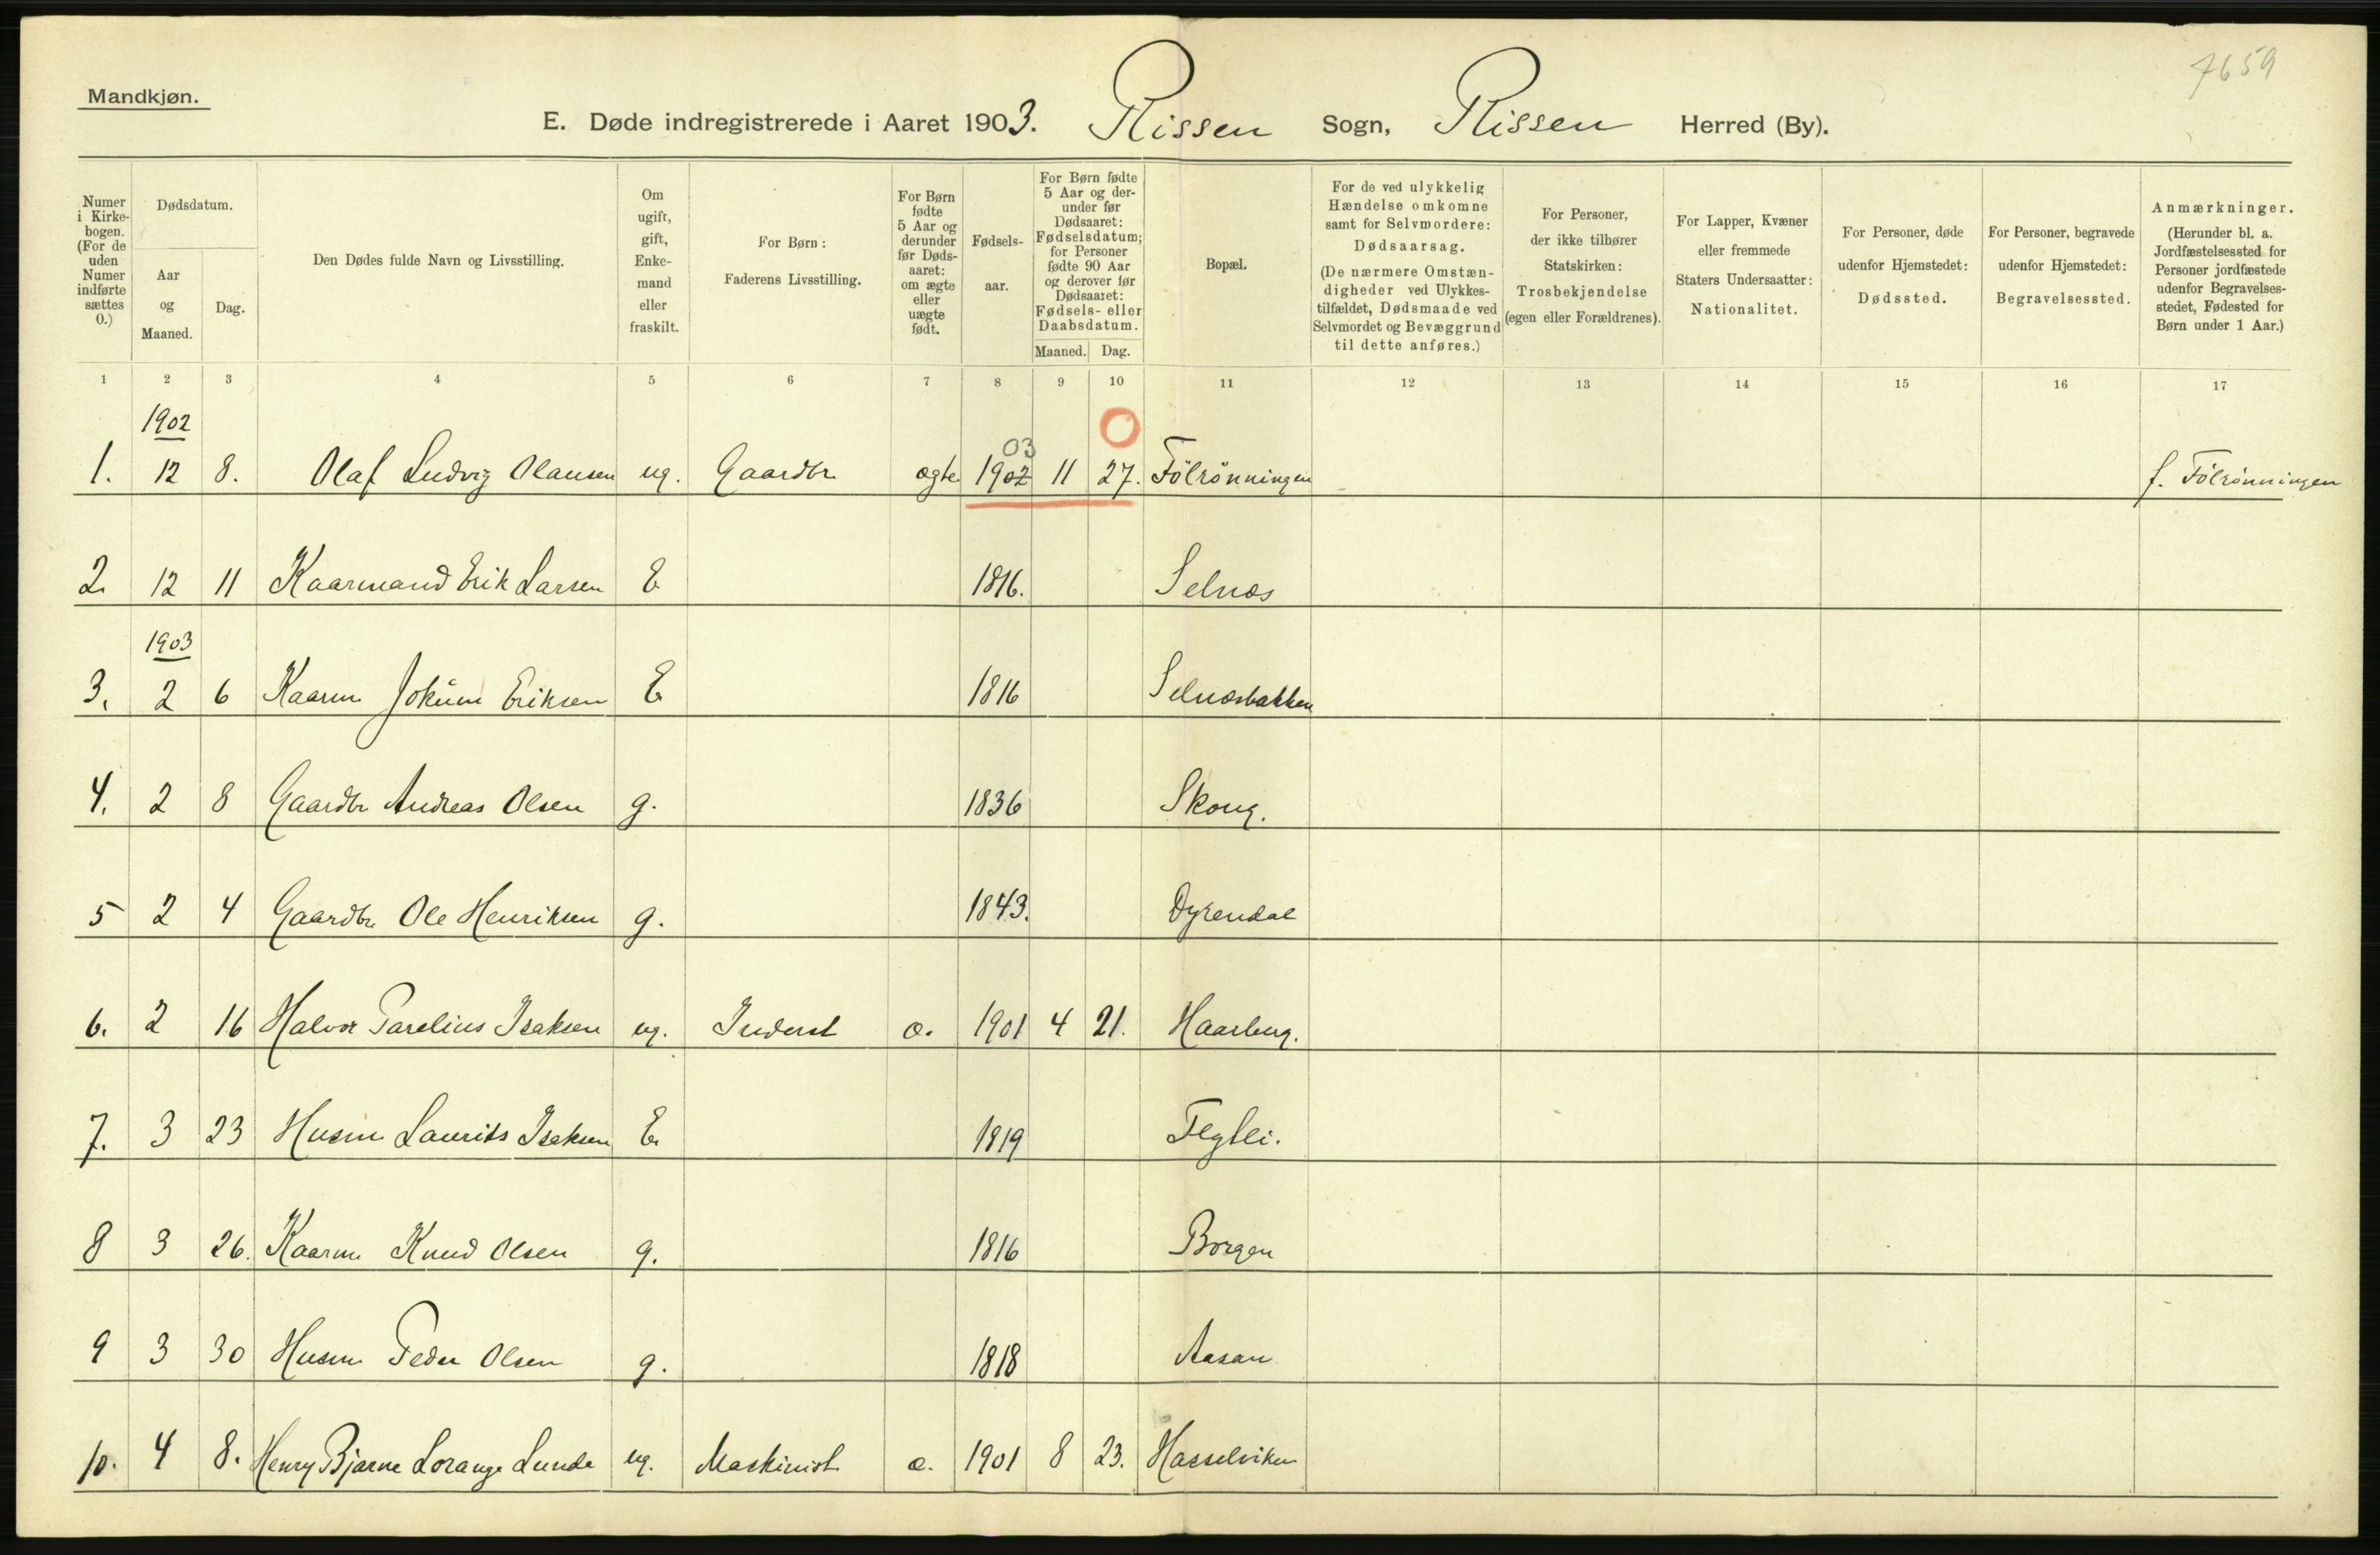 7659
Mandkjøn.
E. Døde indregistrerede i Aaret 1903. Rissen Sogn, Rissen Herred (By).
Numer i Kirkebogen. (For de uden Numer indførte sættes 0.)
Dødsdatum.
Aar og Maaned.
Dag.
Den Dødes fulde Navn og Livsstilling.
Om ugift, gift, Enkemand eller fraskilt.
For Børn: Faderens Livsstilling.
For Børn fødte 5 Aar og derunder før Dødsaaret: om ægte eller uægte født.
Fødselsaar.
For Børn fødte 5 Aar og derunder før Dødsaaret: Fødselsdatum; for Personer fødte 90 Aar og derover før Dødsaaret: Fødsels- eller Daabsdatum.
Maaned. Dag.
Bopæl.
For de ved ulykkelig Hændelse omkomne samt for Selvmordere: Dødsaarsag. (De nærmere Omstændigheder ved Ulykkestilfældet, Dødsmaade ved Selvmordet og Bevæggrund til dette anføres.)
For Personer, der ikke tilhører Statskirken: Trosbekjendelse (egen eller Forældrenes).
For Lapper, Kvæner eller fremmede Staters Undersaatter: Nationalitet.
For Personer, døde udenfor Hjemstedet: Dødssted.
For Personer, begravede udenfor Hjemstedet: Begravelsessted.
Anmærkninger. (Herunder bl. a. Jordfæstelsessted for Personer jordfæstede udenfor Begravelsesstedet, Fødested for Børn under 1 Aar.)
1 2 3 4 5 6 7 8 9 10 11 12 13 14 15 16 17
1902
03
1. 12 8. Olaf Ludvig Olausen ug. Gaardbr ægte 1902 11 27. Fölrönningen f. Fölrönningen
2. 12 11 Kaarmand Erik Larsen E 1816. Selnæs
1903
3. 2 6 Kaarm Jokum Eriksen E 1816 Selnæsbakken
4. 2 8 Gaardbr Andreas Olsen g. 1836 Skoug.
5 2 4 Gaardbr Ole Henriksen g. 1843. Dyrendal
6. 2 16 Halvor Parelius Isaksen ug. Inderst æ. 1901 4 21. Haarberg.
7. 3 23 Husm Laurits Isaksen E. 1819 Fleglei.
8 3 26. Kaarm Knud Olsen g. 1816 Borgen
9 3 30 Husm Peder Olsen g. 1818 Aasan
10. 4 8. Henry Bjarne Lorange Lunde ug. Maskinist æ. 1901 8 23. Hasselviken